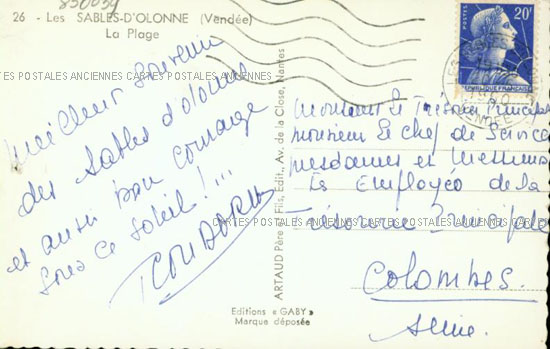 850039
26 - Les SABLES-D'OLONNE (Vendée)
La Plage
Meilleur Souvenir
des Sables d'olonne
et aussi bon courage
sous ce soleil!...
Editions « GABY »
Marque déposée
ARTAUD Père & Fils, Edit., Av. de la Close, Nantes
20F
POSTES
REPUBLIQUE FRANÇAISE
VENDEE
Monsieur le Trésorier Principal
monsieur le chef de Service
mesdames et Messieurs
les Employés de la
Trésorerie Principale
Colombes.
Seine.
CARTES POSTALES ANCIENNES CARTES POSTALES ANCIENNES CARTES POSTALES ANCIENNES
CARTES POSTALES ANCIENNES CARTES POSTALES ANCIENNES CARTES POSTALES ANCIENNES